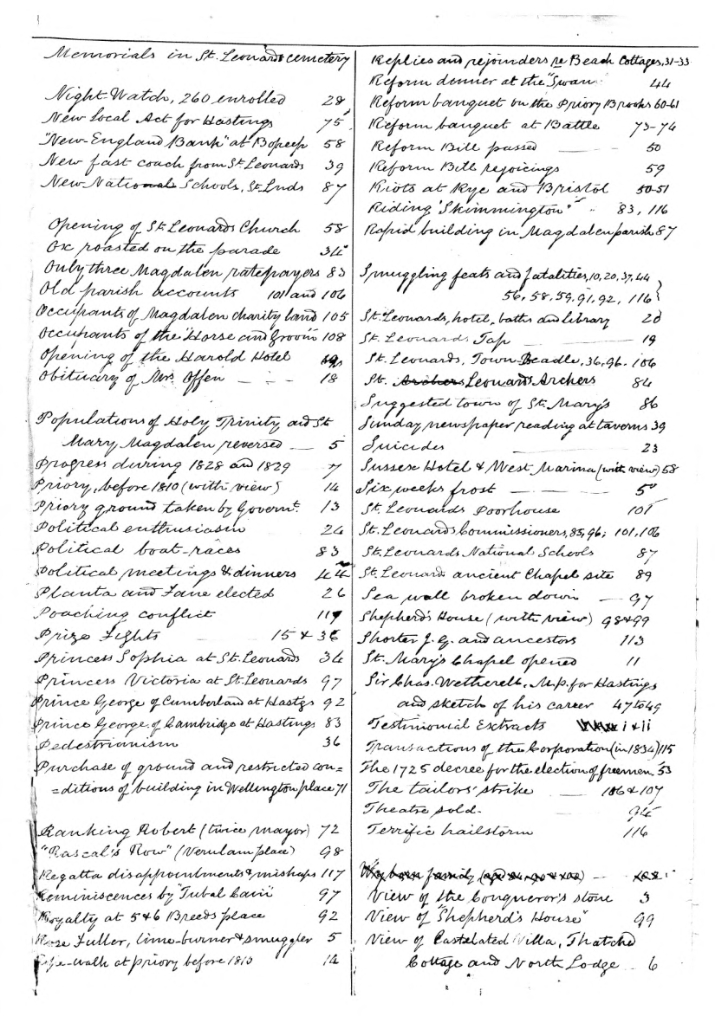 Memorials in St. Leonards cemetery
Night-Watch, 260 enrolled 28
New Local Act for Hastings 75
"New-England Bank" at Bopeep 58
New fast coach from St. Leonards 39
New National Schools, St. Lnds 87
Opening of St. Leonards Church 58
Ox roasted on the parade 34
Only three Magdalen ratepayers 83
Old parish accounts 101 and 106
Occupants of Magdalen charity land 105
Occupants of the "Horse and Groom" 108
Opening of the Harold Hotel
Obituary of Mrs. Offen — — 18
Populations of Holy Trinity and St
Mary Magdalen reversed — 5
Progress during 1828 and 1829 7
Priory, before 1810 (with view) 14
Priory ground taken by Governt. 13
Political enthusiasm 24
Political boat-races 83
Political meetings & dinners 44
Planta and Fane elected 26
Poaching conflict 117
Prize Fights — 15 & 36
Princess Sophia at St. Leonards 34
Princess Victoria at St. Leonards 97
Prince George of Cumberland at Hastgs 92
Prince George of Cambridge at Hastings 83
Pedestrianism 36
Purchase of ground and restricted con=
=ditions of building in Wellington place 71
Ranking Robert (twice mayor) 72
"Rascal's Row" (Verulam place) 98
Regatta disappointments & mishaps 117
Reminiscences by "Tubal Cain" 97
Royalty at 5 & 6 Breeds place 92
Rose Fuller, lime-burner & smuggler 5
Rope-walk at Priory before 1810 14
Replies and rejoinders re Beach Cottages, 31-33
Reform dinner at the "Swan" 44
Reform banquet on the Priory Brooks 60-61
Reform banquet at Battle 73-74
Reform Bill passed — 50
Reform Bill rejoicings 59
Riots at Rye and Bristol 50-51
Riding "Skimmington" 83, 116
Rapid building in Magdalen parish 87
Smuggling feats and fatalities, 10, 20, 37, 44
56, 58, 59, 91, 92, 116
St. Leonards, hotel, baths and library 20
St. Leonards Tap — 19
St. Leonards, Town Beadle, 36, 96, 106
St. Archers Leonards Archers 84
Suggested town of St. Mary's 86
Sunday newspaper reading at taverns 39
Suicides — 23
Sussex Hotel & West Marina (with view) 58
Six weeks frost — — 5
St. Leonards Poorhouse 101
St. Leonards Commissioners, 85, 96, 101, 106
St. Leonards National Schools 87
St. Leonard ancient Chapel site 89
Sea wall broken down — 97
Shepherd's House (with view) 98 & 99
Shorter J. G. and ancestors 113
St. Mary's Chapel opened 11
Sir Chas. Wetherell, M.P. for Hastings
and sketch of his career 47 to 49
Testimonial Extracts i & ii
Transactions of the Corporation (in 1834) 115
The 1725 decree for the election of freemen 53
The tailors' strike — 106 & 107
Theatre sold — 94
Terrific hailstorm 116
family
View of the Conqueror's stone 3
View of "Shepherd's House" 99
View of Castelated Villa, Thatchd
Cottage and North Lodge 6